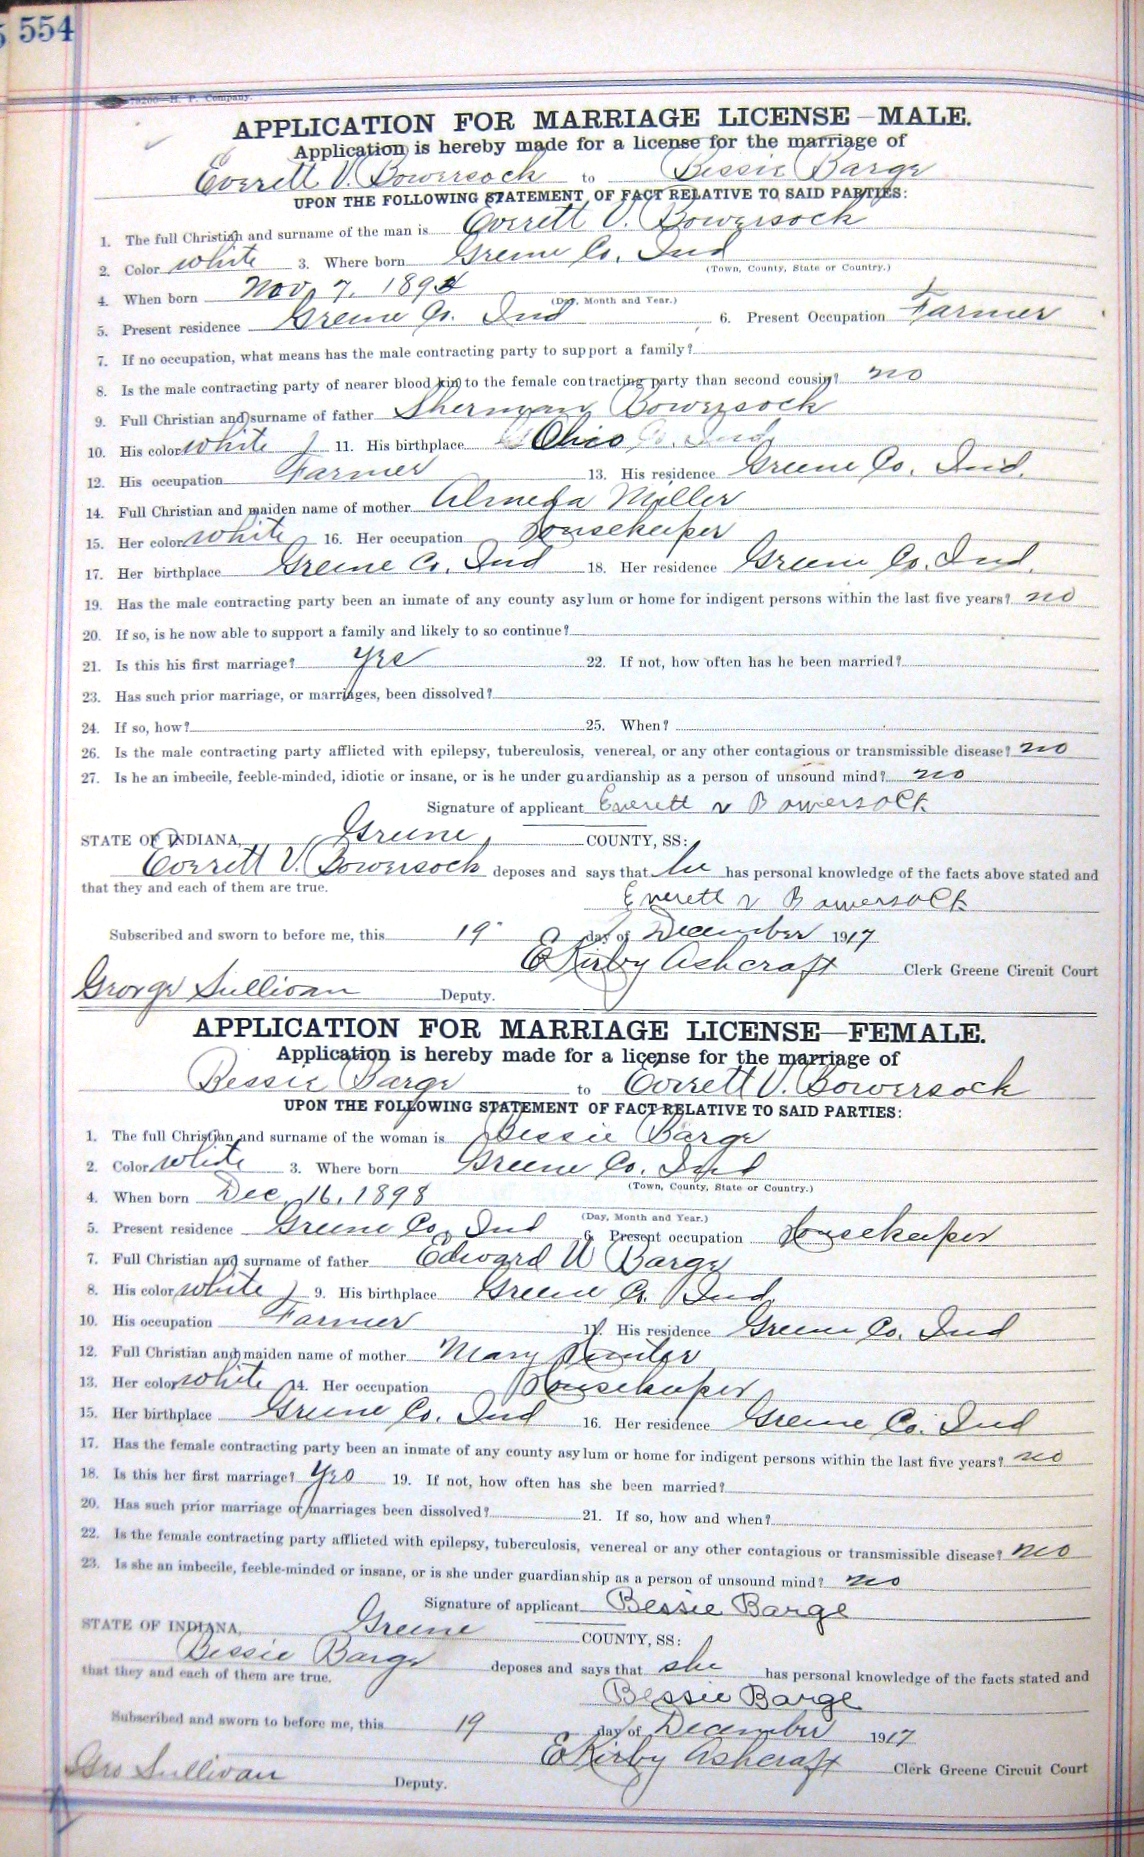 554
79200—H. P. Company.
APPLICATION FOR MARRIAGE LICENSE—MALE.
Application is hereby made for a license for the marriage of
Everett V. Bowersock to Bessie Barge
UPON THE FOLLOWING STATEMENT OF FACT RELATIVE TO SAID PARTIES:
1. The full Christian and surname of the man is Everett V. Bowersock
2. Color white 3. Where born Greene Co. Ind
(Town, County, State or Country.)
4. When born Nov. 7, 1894
(Day, Month and Year.)
5. Present residence Greene Co. Ind 6. Present Occupation Farmer
7. If no occupation, what means has the male contracting party to support a family?
8. Is the male contracting party of nearer blood kin to the female contracting party than second cousin? no
9. Full Christian and surname of father Sherman Bowersock
10. His color white 11. His birthplace Ohio
12. His occupation Farmer 13. His residence Greene Co. Ind.
14. Full Christian and maiden name of mother Almeda Miller
15. Her color white 16. Her occupation Housekeeper
17. Her birthplace Greene Co. Ind 18. Her residence Greene Co. Ind.
19. Has the male contracting party been an inmate of any county asylum or home for indigent persons within the last five years? no
20. If so, is he now able to support a family and likely to so continue?
21. Is this his first marriage? yes 22. If not, how often has he been married?
23. Has such prior marriage, or marriages, been dissolved?
24. If so, how? 25. When?
26. Is the male contracting party afflicted with epilepsy, tuberculosis, venereal, or any other contagious or transmissible disease? no
27. Is he an imbecile, feeble-minded, idiotic or insane, or is he under guardianship as a person of unsound mind? no
Signature of applicant Everett v Bowersock
STATE OF INDIANA, Greene COUNTY, SS:
Everett V. Bowersock deposes and says that he has personal knowledge of the facts above stated and
that they and each of them are true.
Everett v Bowersock
Subscribed and sworn to before me, this 19 day of December 1917
E Kirby Ashcraft Clerk Greene Circuit Court
George Sullivan Deputy.
APPLICATION FOR MARRIAGE LICENSE—FEMALE.
Application is hereby made for a license for the marriage of
Bessie Barge to Everett V. Bowersock
UPON THE FOLLOWING STATEMENT OF FACT RELATIVE TO SAID PARTIES:
1. The full Christian and surname of the woman is Bessie Barge
2. Color white 3. Where born Greene Co. Ind
(Town, County, State or Country.)
4. When born Dec. 16, 1898
(Day, Month and Year.)
5. Present residence Greene Co. Ind 6. Present occupation Housekeeper
7. Full Christian and surname of father Edward W Barge
8. His color white 9. His birthplace Greene Co. Ind
10. His occupation Farmer 11. His residence Greene Co. Ind
12. Full Christian and maiden name of mother Mary
13. Her color white 14. Her occupation Housekeeper
15. Her birthplace Greene Co. Ind 16. Her residence Greene Co. Ind
17. Has the female contracting party been an inmate of any county asylum or home for indigent persons within the last five years? no
18. Is this her first marriage? Yes 19. If not, how often has she been married?
20. Has such prior marriage or marriages been dissolved? 21. If so, how and when?
22. Is the female contracting party afflicted with epilepsy, tuberculosis, venereal or any other contagious or transmissible disease? no
23. Is she an imbecile, feeble-minded or insane, or is she under guardianship as a person of unsound mind? no
Signature of applicant Bessie Barge
STATE OF INDIANA, Greene COUNTY, SS:
Bessie Barge deposes and says that she has personal knowledge of the facts stated and
that they and each of them are true.
Bessie Barge
Subscribed and sworn to before me, this 19 day of December 1917
E Kirby Ashcraft Clerk Greene Circuit Court
Geo Sullivan Deputy.